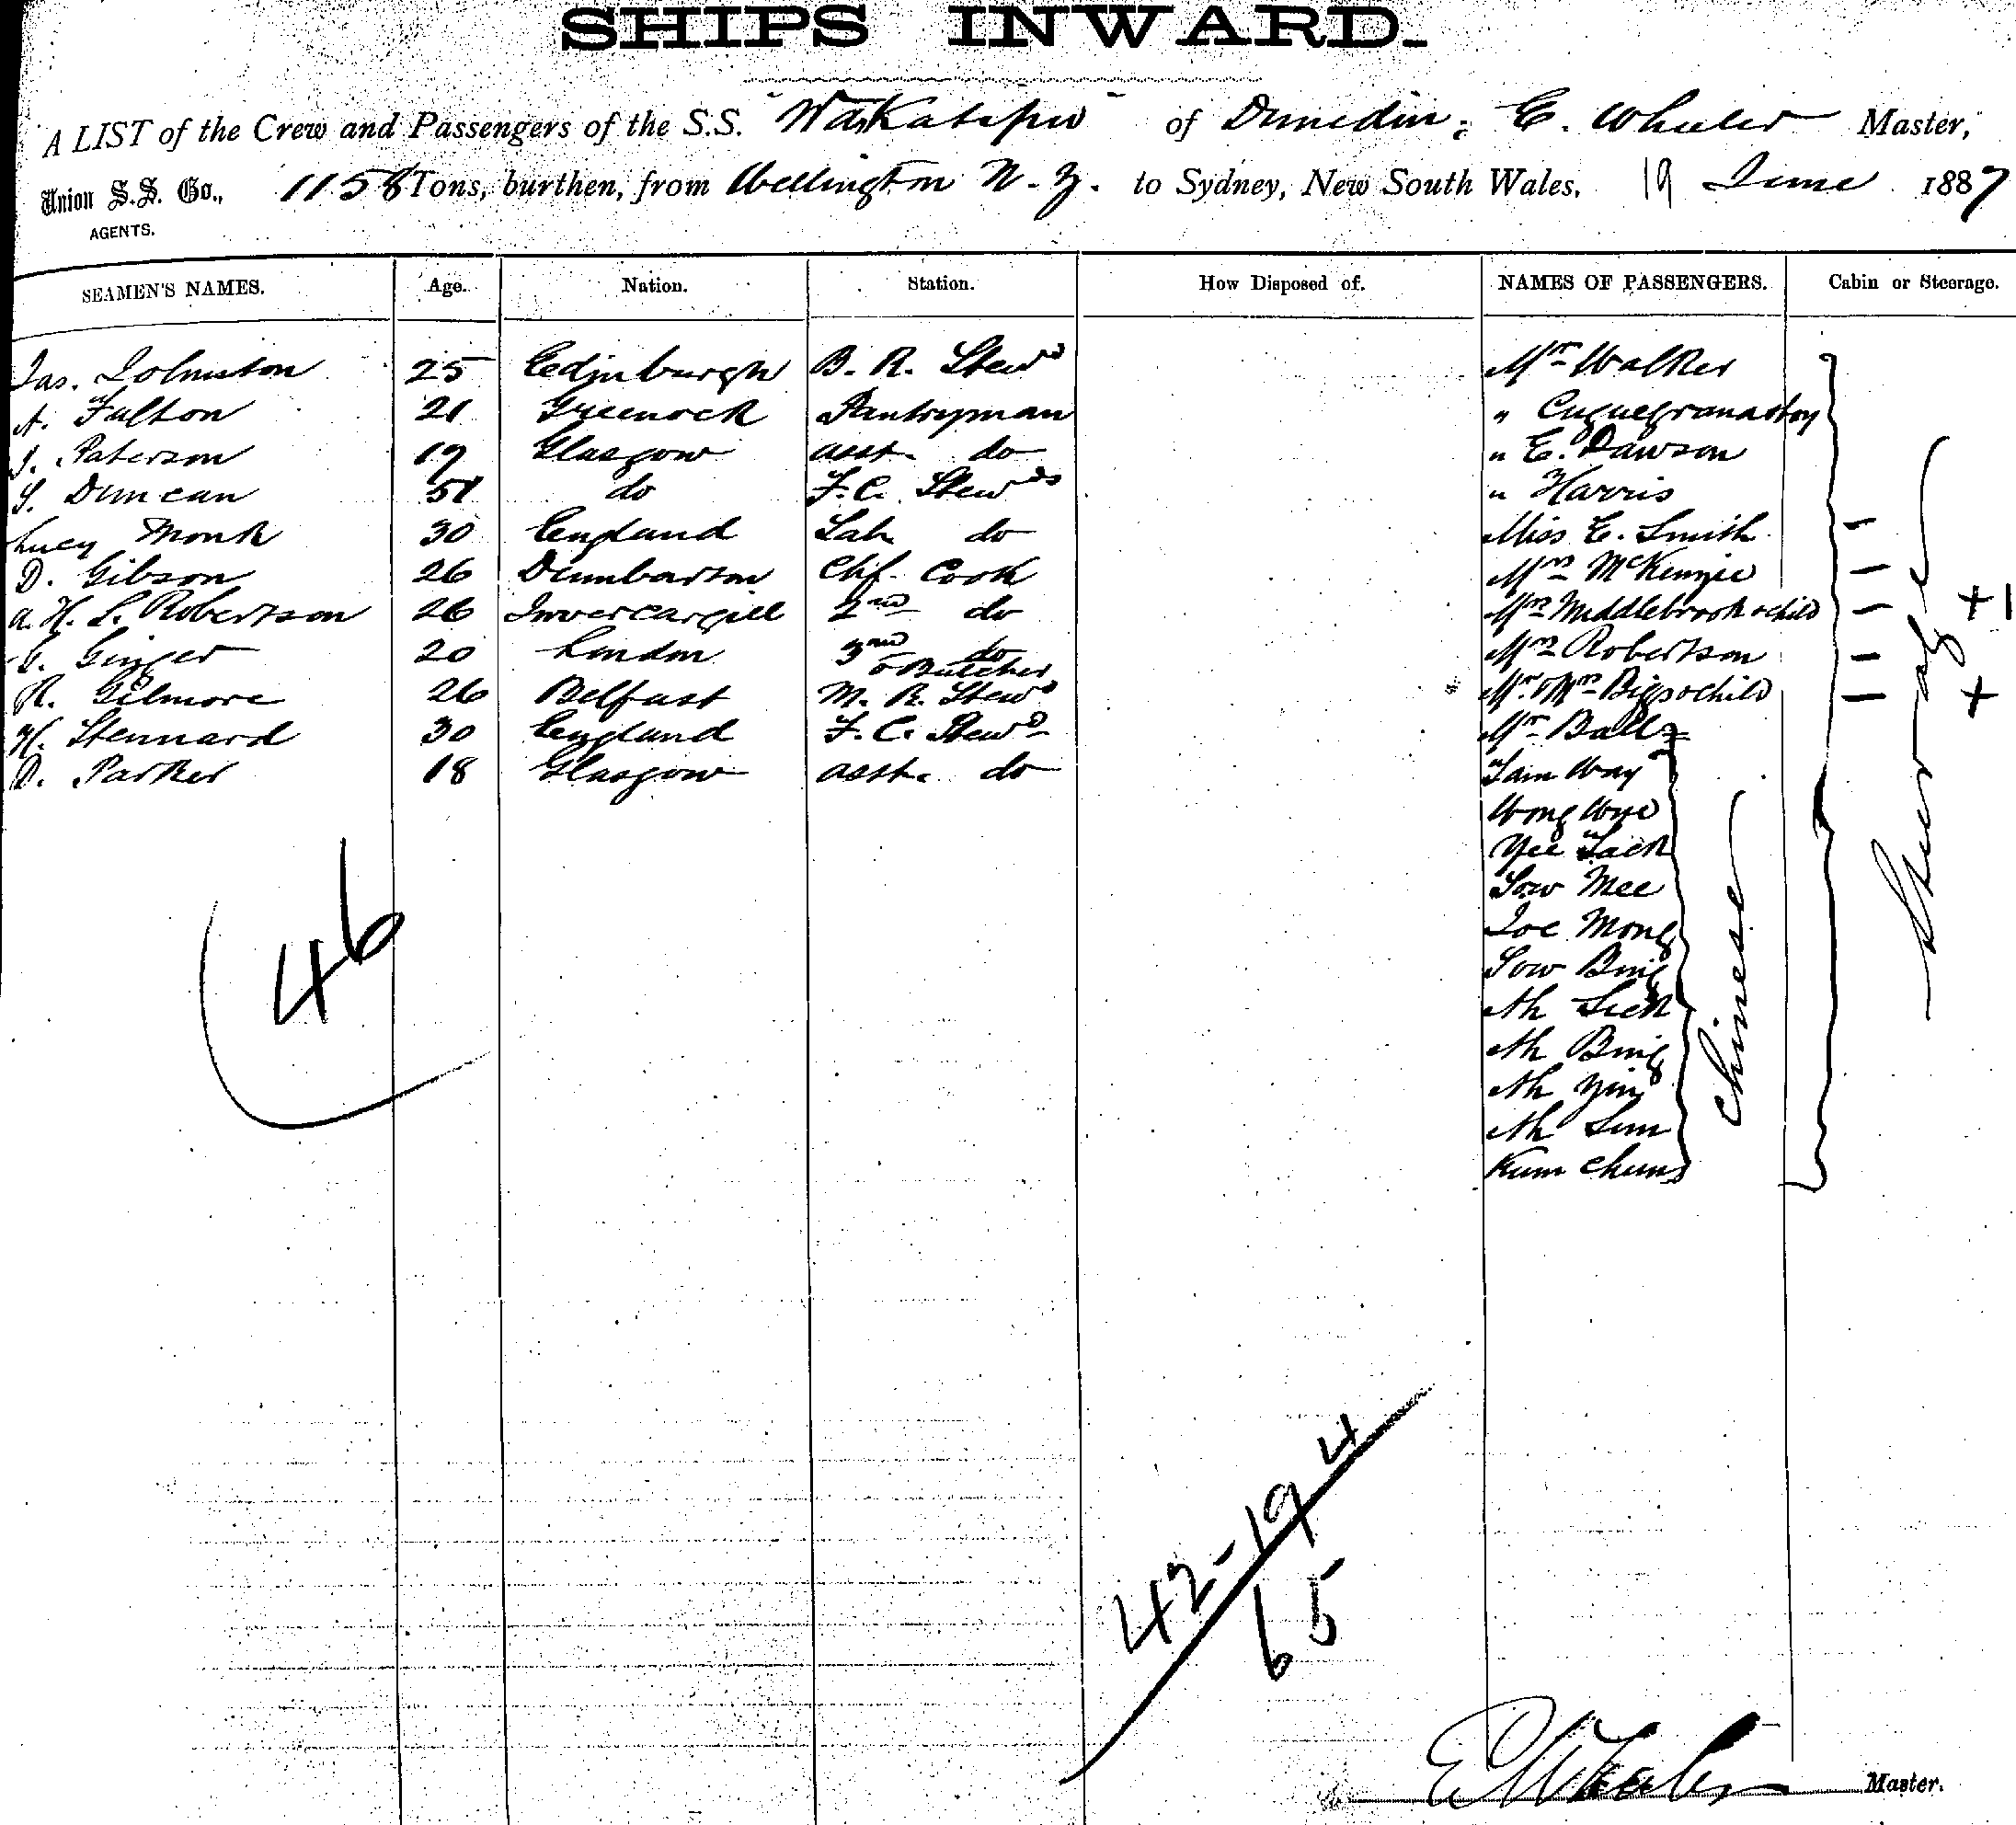 SHIPS INWARD.
A LIST of the Crew and Passengers of the S.S. "Wakatipu" of Dunedin, E. Wheeler Master,
Union S.S. Co., AGENTS. 1158 Tons, burthen, from Wellington N.Z. to Sydney, New South Wales, 19 June 1887
SEAMEN'S NAMES. Age. Nation. Station. How Disposed of. NAMES OF PASSENGERS. Cabin or Steerage.
Jas. Johnston 25 Edinburgh B. R. Stewd Mr Walker
A. Fulton 21 Greenock Pantryman "
J. Paterson 19 Glasgow asst. do " E. Dawson
Duncan 51 do F.C. Stewds " Harris
Lucy Monk 30 England do Miss E. Smith
D. Gibson 26 Dumbarton Chf. Cook Mrs McKenzie
A. H. L. Robertson 26 Invercargill 2nd do Mrs Middlebrook & child + 1
Ginger 20 London 3rd do & Butcher Mrs Robertson
R. Gilmore 26 Belfast M. R. Stewd Mr & Mrs Biggs & child +
H. Stennard 30 England F.C. Stewd Mr Ball
D. Parker 18 Glasgow asst. do Tam Way
Wong Wye
Yee Jack
Sow Mee
Joe Mong
Sow Bing
Ah Sick
Ah Bing
Ah Yin
Ah Sim
Kum Chung
Chinese
Steerage
46
42-19 4
65
E Wheeler Master.